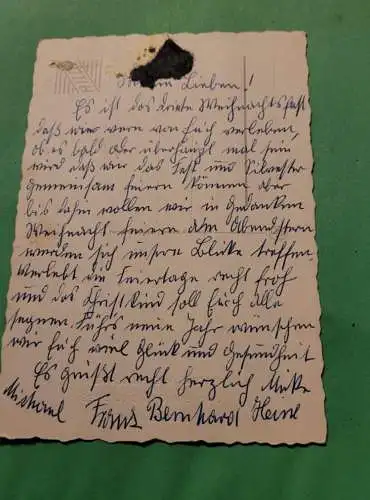 Meine Lieben!
Es ist das dritte Weihnachtsfest
daß wir fern von Euch verleben,
ob es bald oder überhaupt mal sein
wird daß wir das Fest und Silvester
gemeinsam feiern können aber
bis dahin wollen wir in Gedanken
Weihnacht feiern am Abendstern
werden sich unsere Blicke treffen.
Verlebt die Feiertage recht froh
und das Christkind soll Euch alle
segnen. Fürs neue Jahr wünschen
wir Euch viel Glück und Gesundheit
Es grüßt recht herzlich
Michael Franz Bernhard